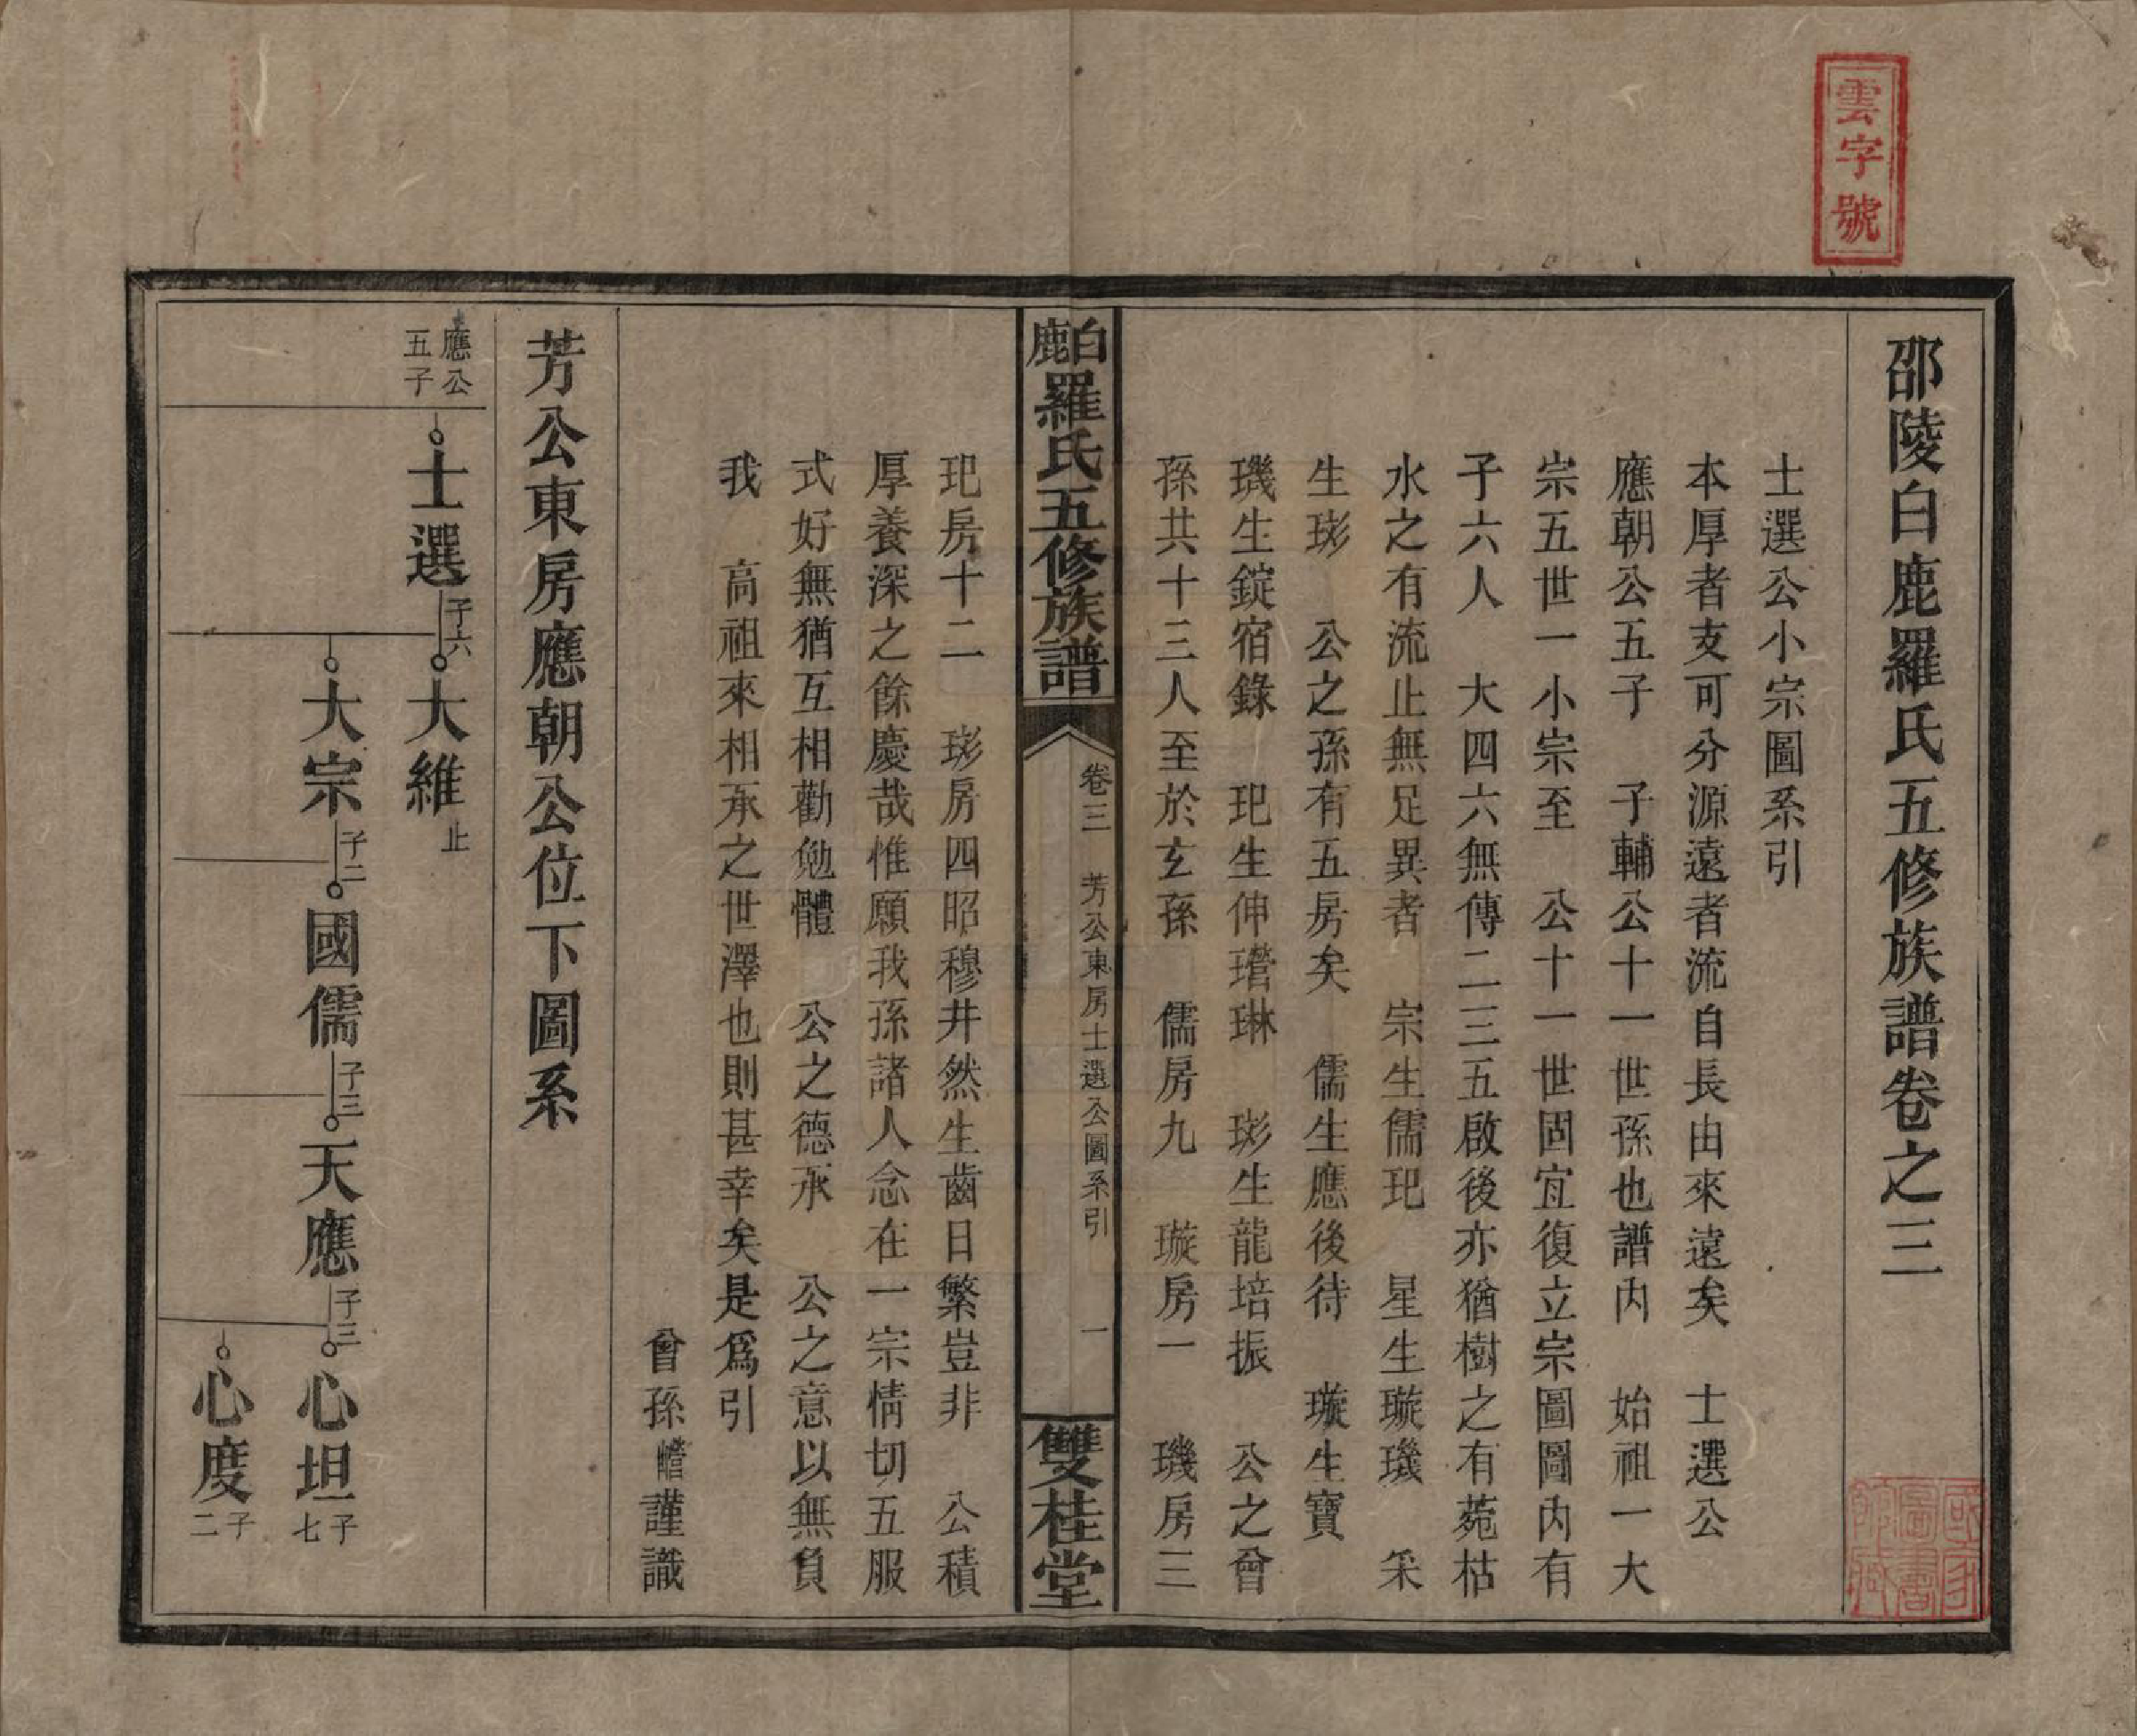 雲字號
邵陵白鹿羅氏五修族譜卷之三
士選公小宗圖系引
本厚者支可分源遠者流自長由來遠矣　士選公
應朝公五子　子輔公十一世孫也譜內　始祖一大
宗五世一小宗至　公十一世固宜復立宗圖圖內有
子六人　大四六無傳二三五啟後亦猶樹之有菀枯
水之有流止無足異者　宗生儒玘　星生璇璣　采
生珳　公之孫有五房矣　儒生應後待　璇生寶
璣生錠宿錄　玘生伸璔琳　珳生龍培振　公之曾
孫共十三人至於玄孫　儒房九　璇房一　璣房三
白鹿羅氏五修族譜
卷三　芳公東房士選公圖系引　一
雙桂堂
玘房十二　珳房四昭穆井然生齒日繁豈非　公積
厚養深之餘慶哉惟願我孫諸人念在一宗情切五服
式好無猶互相勸勉體　公之德承　公之意以無負
我　高祖來相承之世澤也則甚幸矣是爲引
曾孫　謹識
芳公東房應朝公位下圖系
應公五子
士選　子六　大維　止
大宗　子二　國儒　子三　天應　子三　心坦　子七
心度　子二
國家圖書館藏